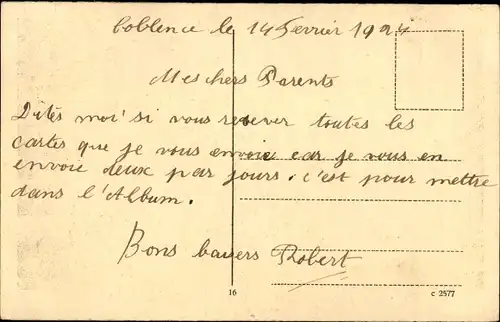 Coblence le 14 Fevrier 1924
Mes chers Parents
Dites moi si vous recever toutes les
cartes que je vous envoie car je vous en
envoie deux par jours. c'est pour mettre
dans l'Album.
Bons baisers Robert
16
C 2577